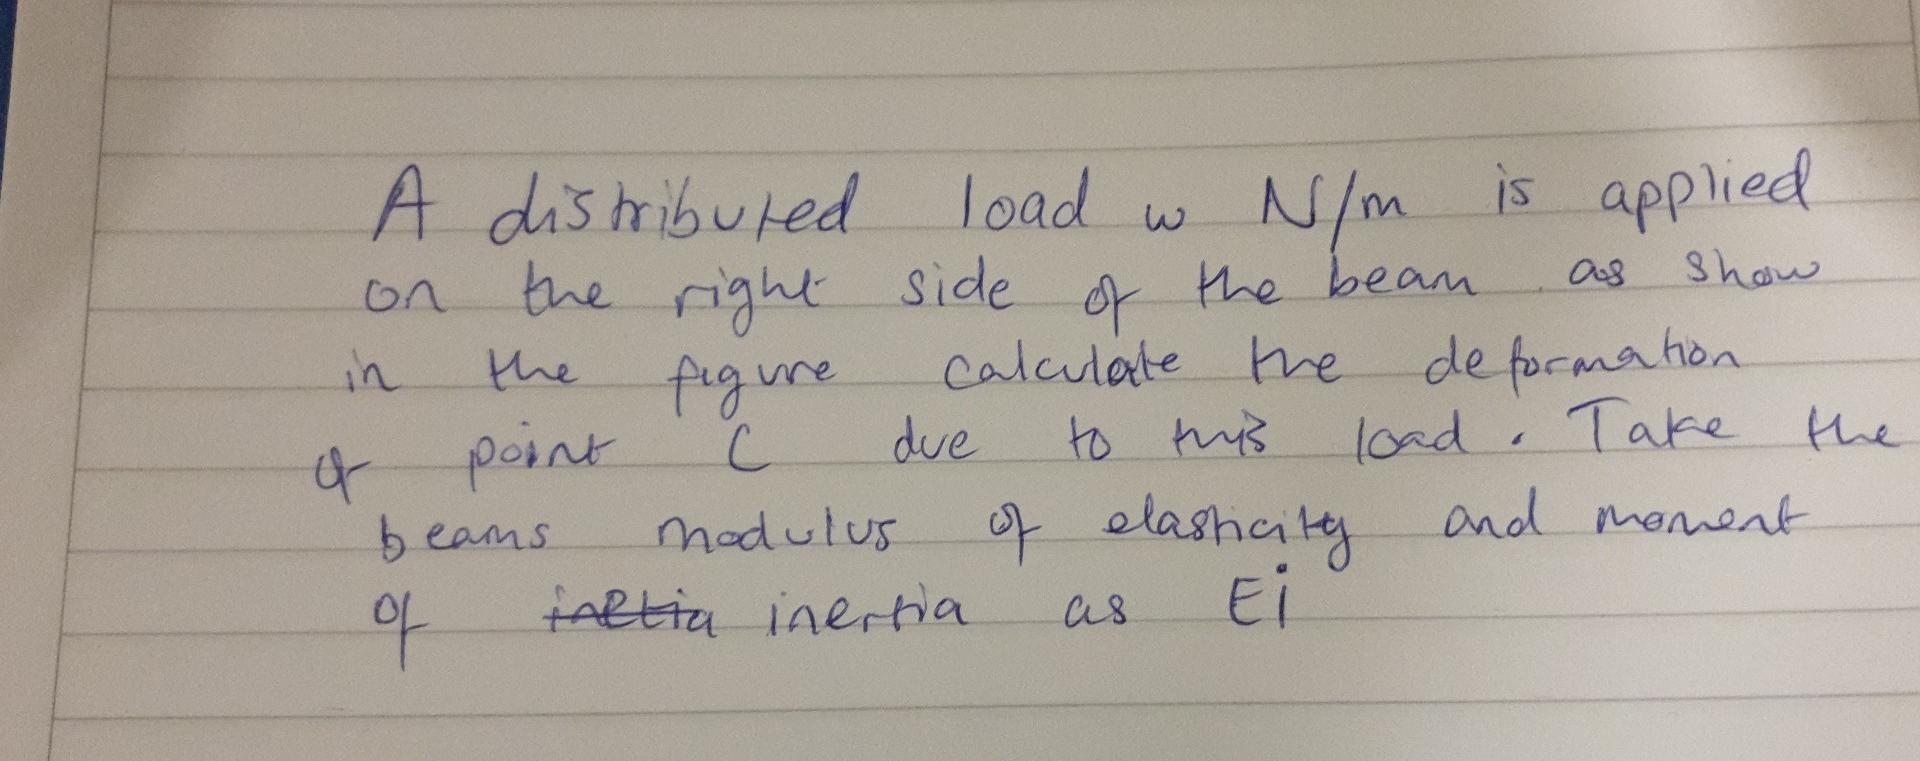 A distributed load w N/m is applied
on the right side of the beam as show
in the figure calculate the deformation
of point C due to this load. Take the
beams modulus of elasticity and moment
of inetia inertia as Ei